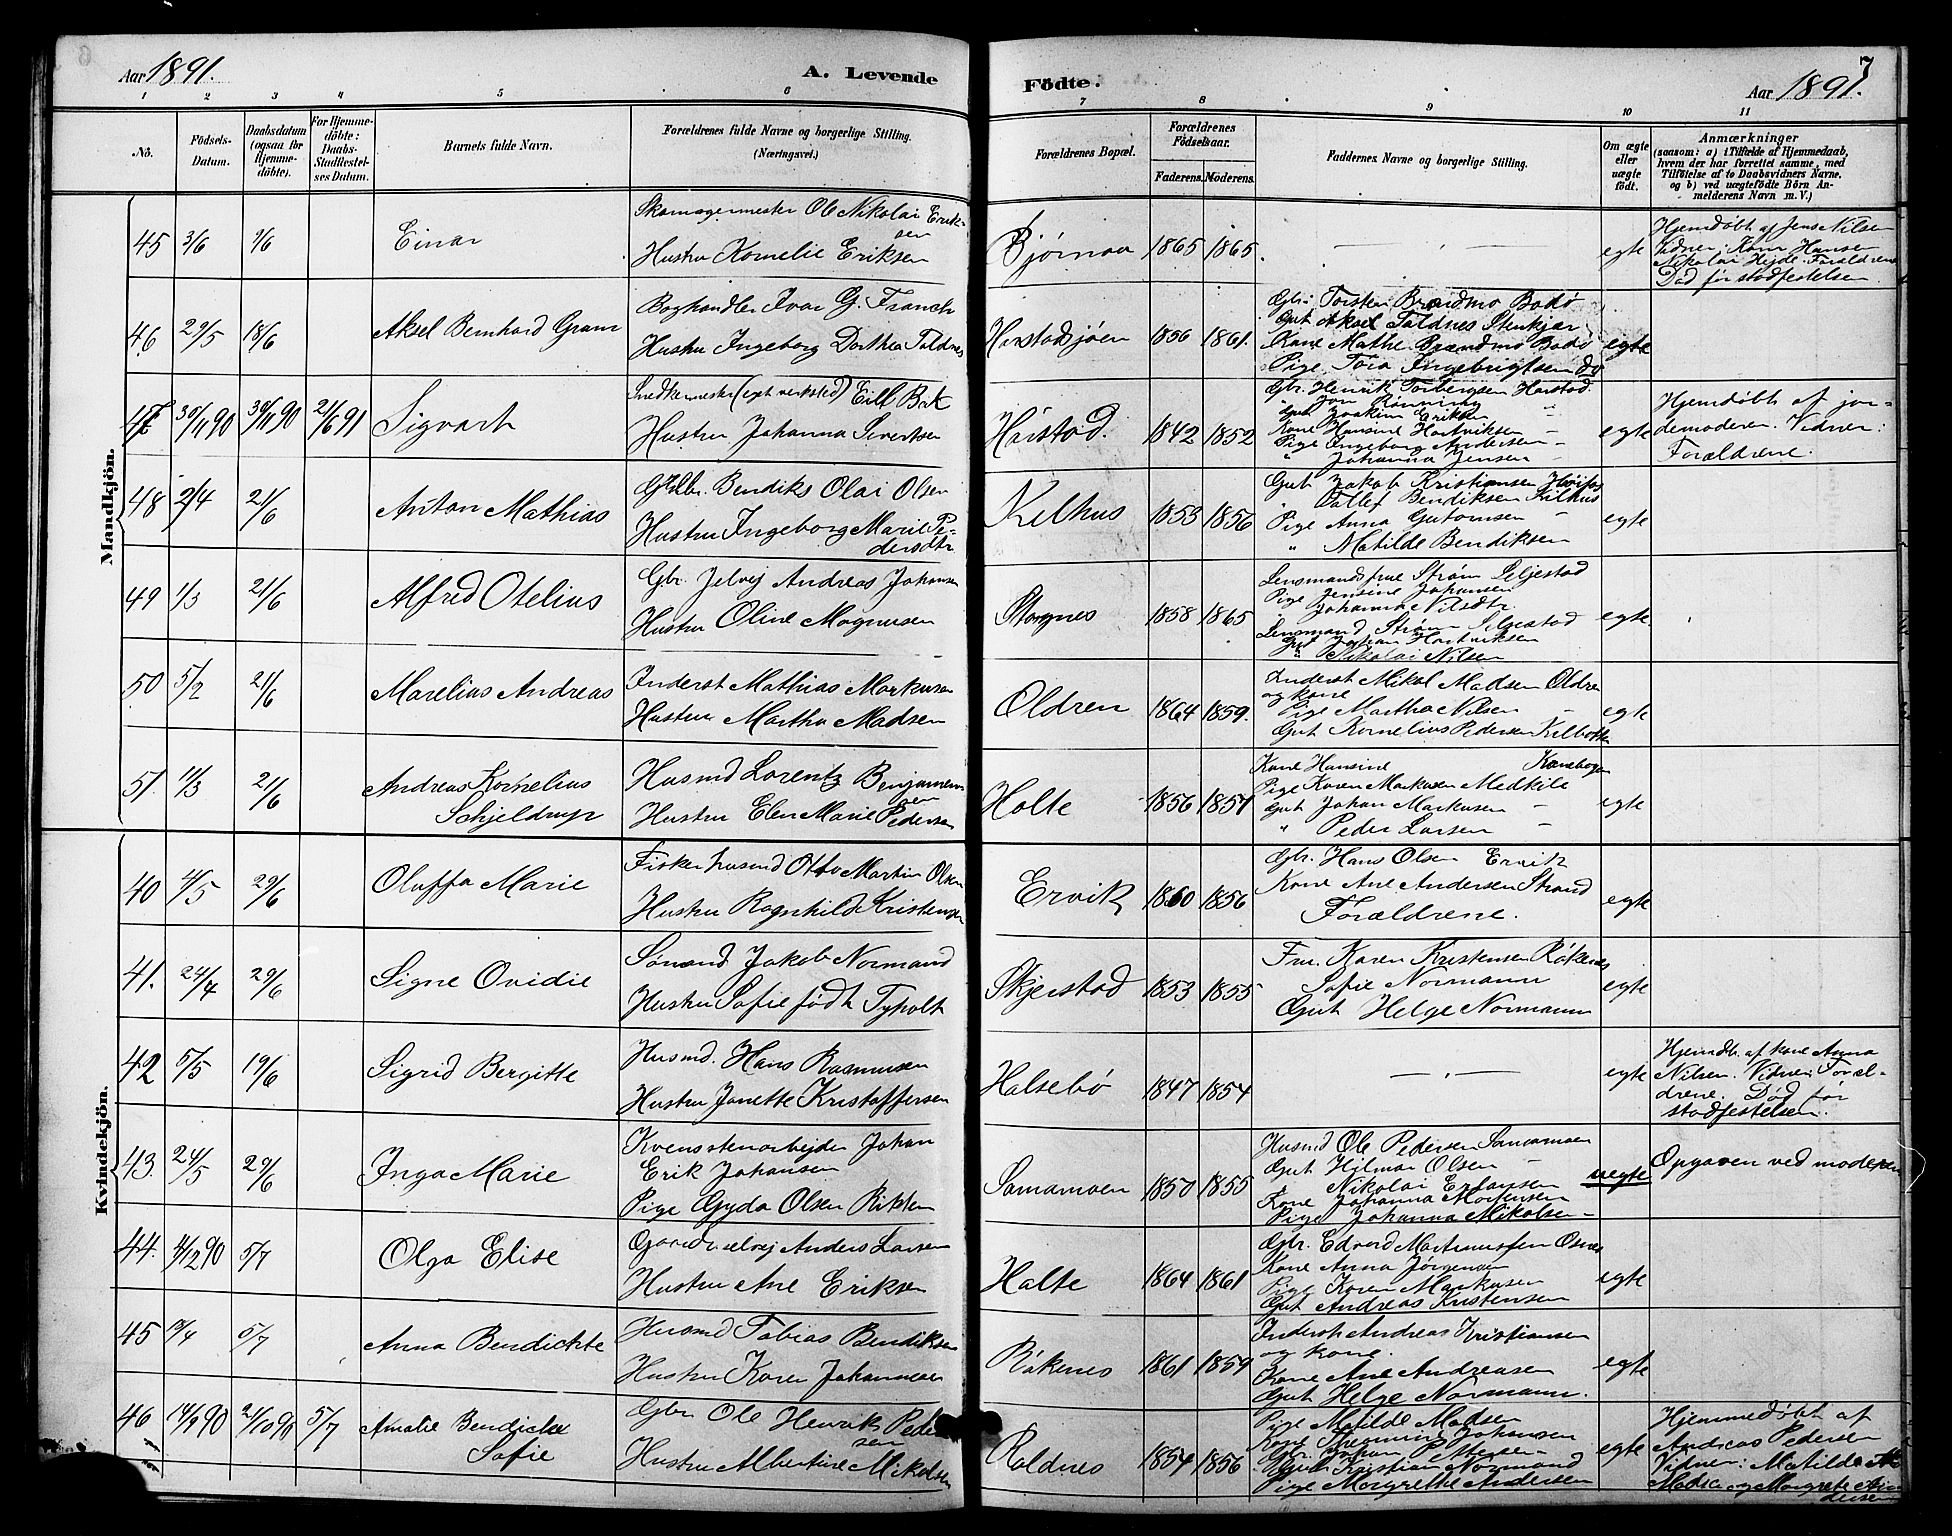 Aar 1891.
A. Levende
Födte.
Aar 1891.
7
1 2 3 4 5 6 7 8 9 10 11
No.
Födsels-Datum.
Daabsdatum (ogsaa for Hjemme-döbte).
For Hjemme-döbte: Daabs-Stadfæstel-ses Datum.
Barnets fulde Navn.
Forældrenes fulde Navne og borgerlige Stilling. (Næringsvei.)
Forældrenes Bopæl.
Forældrenes Födselsaar.
Faderens. Möderens.
Faddernes Navne og borgerlige Stilling.
Om ægte eller uægte födt.
Anmærkninger
(saasom: a) i Tilfælde af Hjemmedaab,
hvem der har forrettet samme, med
Tilföielse af to Daabsvidners Navne.
og b) ved uægtefödte Börn An-
melderens Navn m. V.)
Mandkjön.
45 3/6 7/6 Einar
Skomagermester Ole Nikolai Erik-
sen
Hustru Kornelie Eriksen
Bjørnaa 1865 1865. egte
Hjemdøbt af Jens Nilsen
Vidner: Hansen
Nikolai Forældrene
Død før stadfestelsen
46 29/5 18/6 Aksel Bernhard Gram
Boghandler Ivar G. Franck
Hustru Ingeborg Dorthea Foldnes
Harstadsjøen 1856 1861. egte
Gbr: Torsten Brandmo Bodø
Gut Aksel Foldnes Stenkjær
Kone Mathe Brandmo Bodø
Pige Tora Ingebrigtsen do
47 30/11 90 30/11 90 21/6 91 Sigvart
Snedkermester (eget verksted) Eill Bak
Hustru Johanna Sivertsen
Harstad. 1842 1852 egte
Gbr. Henrik Torbergsen Harstad
" Jon Rønning "
Gut Joakim Eriksen
Kone Hansine Hartviksen -
Pige Ingeborg Andersen -
" Johanna Jensen -
Hjemdøbt af jor-
demoderen. Vidner:
Forældrene.
48 2/4 21/6 Anton Mathias
Gbr. Bendiks Olai Olsen
Hustru Ingeborg Marie Pe-
dersdtr
Kelhus 1853 1856 egte
Gut Jakob Kristiansen
Tallef Bendiksen Kilhus
Pige Anna Gutomsen -
" Matilde Bendiksen
49 1/3 21/6 Alfred Otelius
Gbr. Selvej Andreas Johansen
Hustru Oline Magnusen
Stangnes 1858 1865 egte
Lensmandsfrue Strøm Seljestad
Pige Jensine Johansen
Johanna Nilsdtr.
Lensmand Strøm Seljestad
Gut Johan Hartviksen
" Nikolai Nilsen
50 5/2 21/6 Marelius Andreas
Inderst Mathias Markusen
Hustru Martha Madsen
Oldren 1864 1859. egte
Inderst Mikal Madsen Oldren
og kone
Pige Martha Nilsen -
Gut Kornelius Pedersen Kilbotn
51. 11/3 21/6 Andreas Kornelius
Schjeldrup
Husmd Lorentz Benjamin-
sen
Hustru Elen Marie Pedersen
Holte 1856 1857 egte
Kone Hansine Kanebogen
Pige Karen Markusen Medkile
Gut Johan Markusen -
" Peder Larsen -
Kvindekjön.
40 4/5 29/6 Oluffa Marie
Fisker husmd Otto Martin Olsen
Hustru Ragnhilde Kristensen
Ervik 1860 1856 egte
Gbr. Hans Olsen Ervik
Kone Ane Andersen Strand
Forældrene.
41. 24/4 29/6 Signe Ovidie
Sømand Jakob Normand
Hustru Sofie født Tyholt
Skjerstad 1853 1855 egte
Fru. Karen Kristensen Røkenes
Sofie Normann
Gut Helge Normann
42 5/5 19/6 Sigrid Bergitte
Husmd. Hans Rasmusen
Hustru Janette Kristoffersen
Halsebø 1847 1854 egte
Hjemdb. af kone Anna
Nilsen. Vidner: Foræl-
drene. Død før
stadfestelsen.
43. 24/5 29/6 Inga Marie
Kvensstenarbejder Johan
Erik Johansen
Pige Gyda Olsen
Samamoen 1850 1855 uegte
Husmd Ole Pedersen Samamoen
Gut Hilmar Olsen -
Nikolai Erlansen
Kone Johanna Mortensen
Pige Johanna Mikalsen -
Opgaven ved moderen
44. 4/12 90 5/7 Olga Elise
Gaardb. selvej Anders Larsen
Hustru Ane Eriksen
Halte 1864 1861 egte
Gbr. Edvard Martinussen Osnes
Kone Anna Jørgensen
Pige Karen Markusen
Gut Andreas Kristensen
45 9/4 5/7 Anna Bendichte
Husmd Tobias Bendiksen
Hustru Karen Johannesen
Røkenes 1861 1859 egte
Inderst Andreas Kristiansen
og kone.
Kone Ane Andreasen
Gut Helge Normann.
46 14/9 90 24/10 90 5/7 Amalie Bendickte
Sofie
Gbr Ole Henrik Peder-
sen
Hustru Albertine Mikalsen
Roldnes 1854 1856 egte
Pige Matilde Madsen
Kone Johansen
Gbr. Johan Pettersen -
Gut Kristian Normand
Pige Margrethe Andersen
Hjemmedøbt af
Andreas Pedersen
Vidner: Matilda
Madsen og Margrete An-
dersen